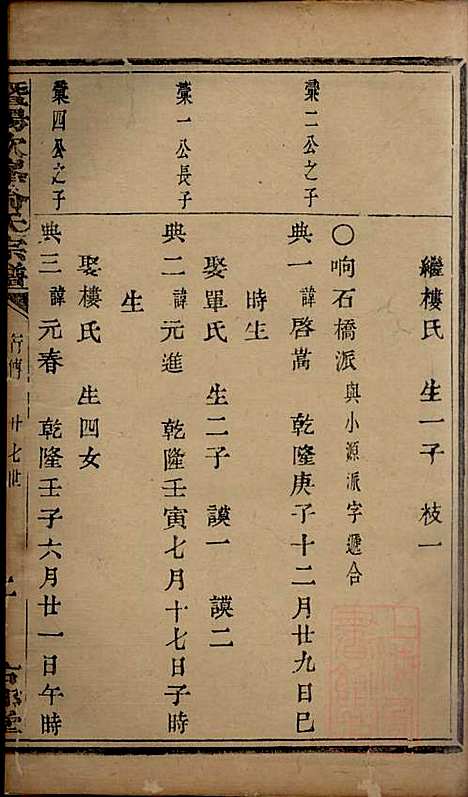 繼樓氏　生一子　枝一
〇响石橋派與小源派字遞合
槖二公之子
典一諱啓嵩　乾隆庚子十二月廿九日巳
時生
娶單氏　生二子　謨一　謨二
槖一公長子
典二諱元進　乾隆壬寅七月十七日子時
生
娶樓氏　生四女
槖四公之子
典三諱元春　乾隆壬子六月廿一日午時
暨陽次峯俞氏宗譜
行傳　廿七世